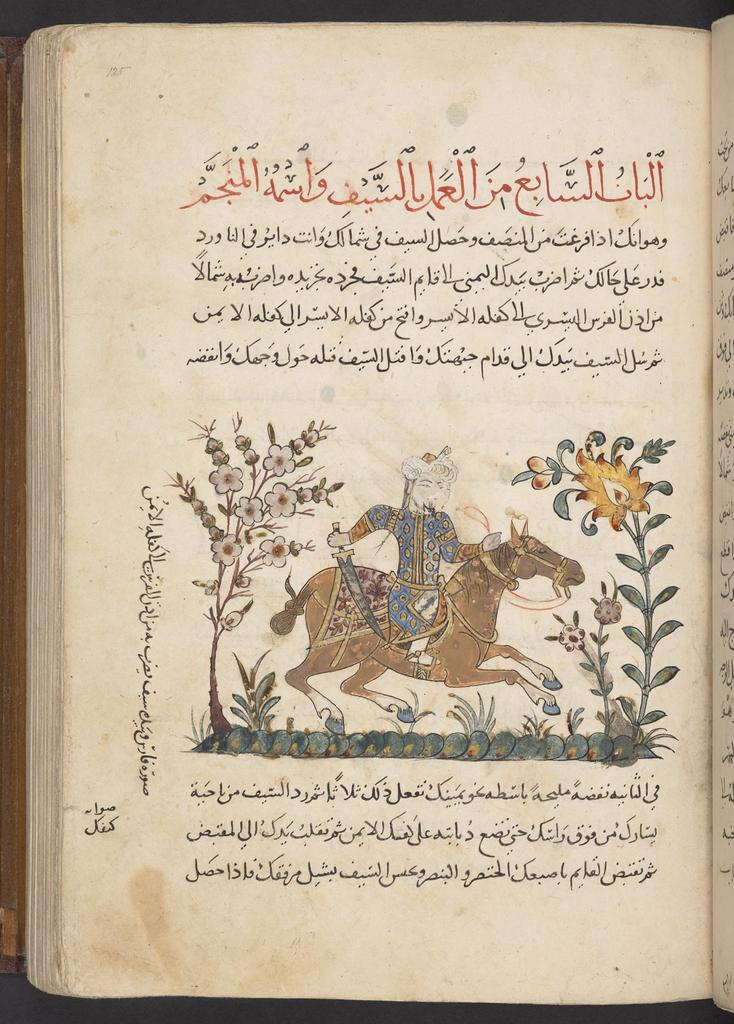 ١٢٥
الباب السابع من العمل بالسيف واسمه المنجم
وهو انك اذا فرغت من المنصف وحصل السيف في شمالك وانت داير في الناورد
فدر على حالك ثم اضرب بيدك اليمنى الا قايم السيف فجرده تجريده واضرب به شمالا
من اذن الفرس اليسرى الا كفله الايسر وافتح من كفله الايسر الى كفله الايمن
ثم سل السيف بيدك الى قدام جبهتك وافتل السيف فتله حول وجهك وانفضه
صورة فارس وبيده سيف يضرب به من اذن الفرس الى كفله الايمن
في الثانيه نفضة مليحة باسطه نحو يمينك تفعل ذلك ثلاثا ثم رد السيف من ناحية
يسارك من فوق راسك حتى تضع دبابه على كتفك الايمن ثم تقلب يدك الى المقبض
صوابه
كتفك
ثم تقبض القايم باصبعك الخنصر والبنصر وعس السيف بشيل مرفقك فاذا حصل